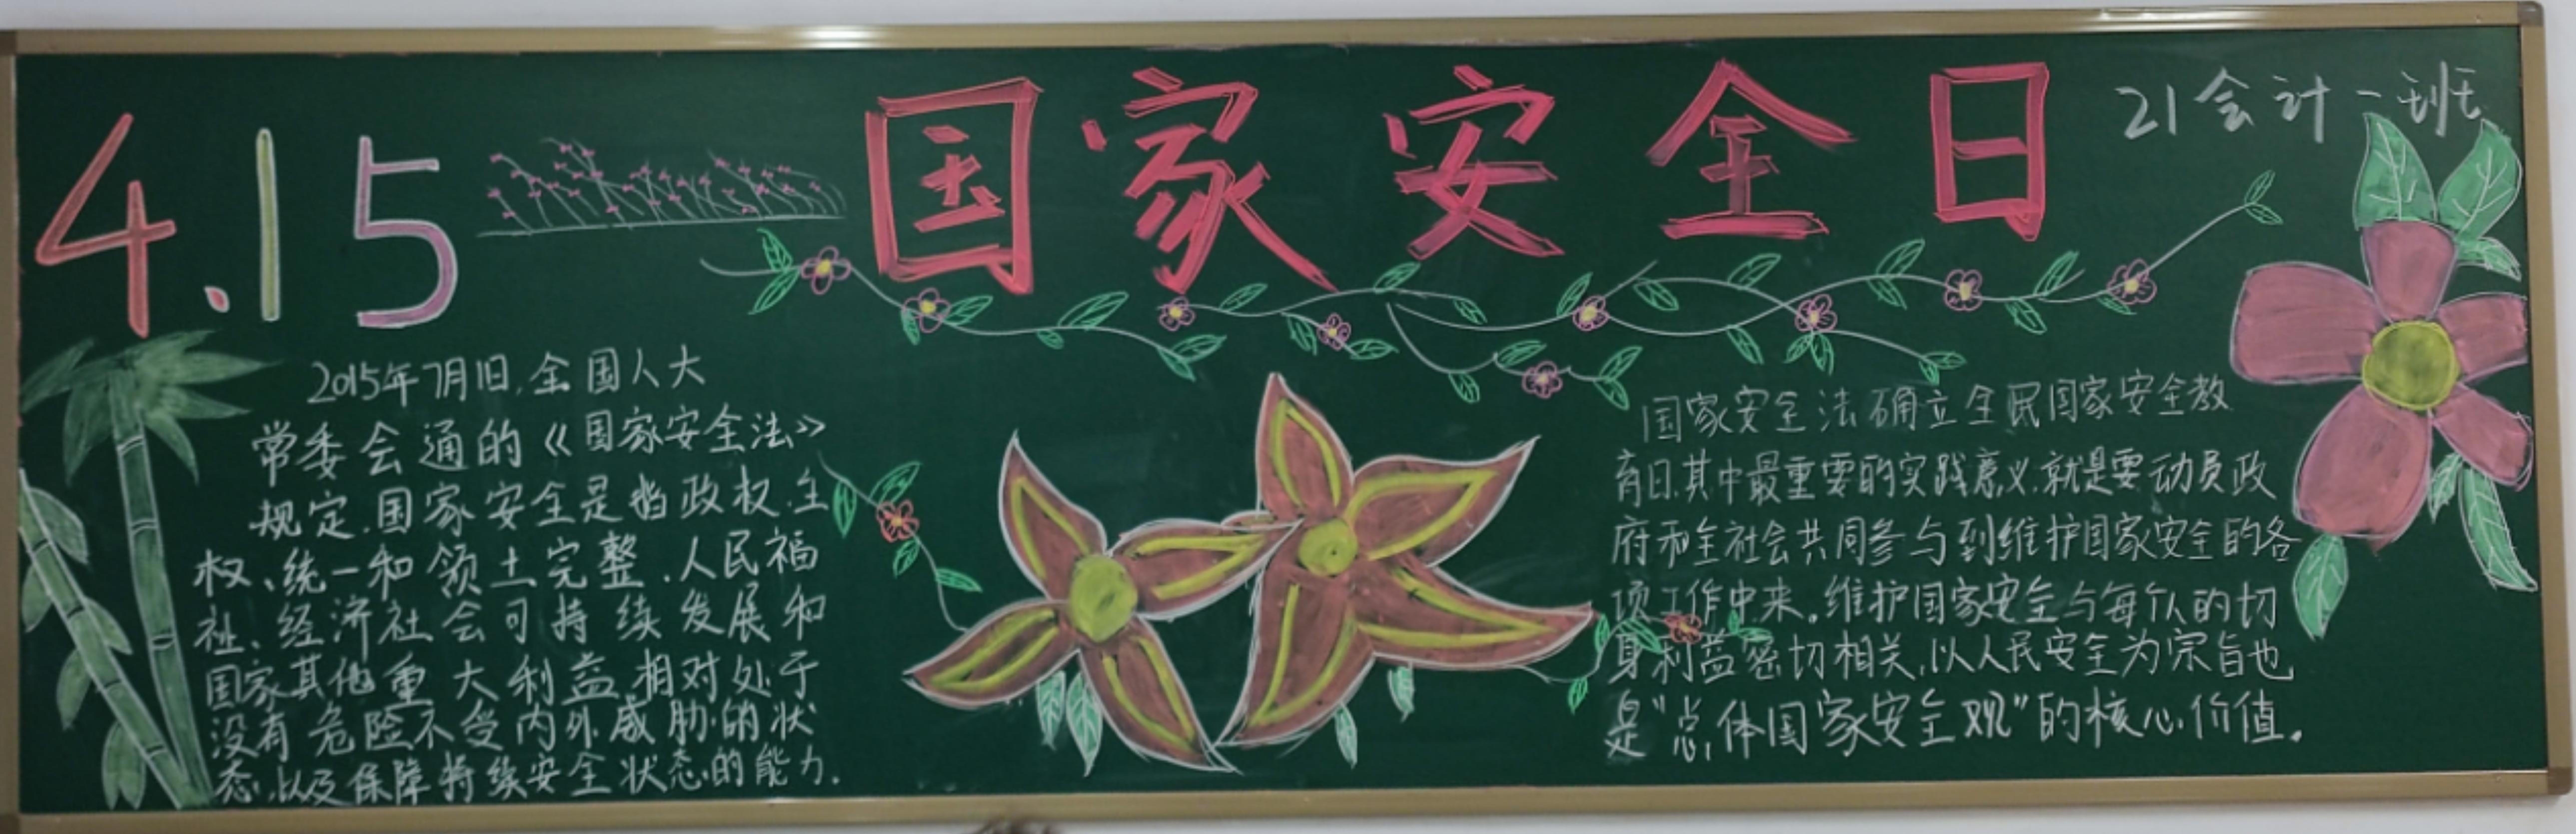 4.15
国家安全日
21会计一班
2015年7月1日,全国人大
常委会通的《国家安全法》
规定.国家安全是指政权.主
权、统一和领土完整、人民福
祉、经济社会可持续发展和
国家其他重大利益相对处于
没有危险不受内外威胁的状
态,以及保障持续安全状态的能力.
国家安全法确立全民国家安全教
育日.其中最重要的实践意义.就是要动员政
府和全社会共同参与到维护国家安全的各
项工作中来。维护国家安全与每个人的切
身利益密切相关,以人民安全为宗旨也
是“总体国家安全观”的核心价值。